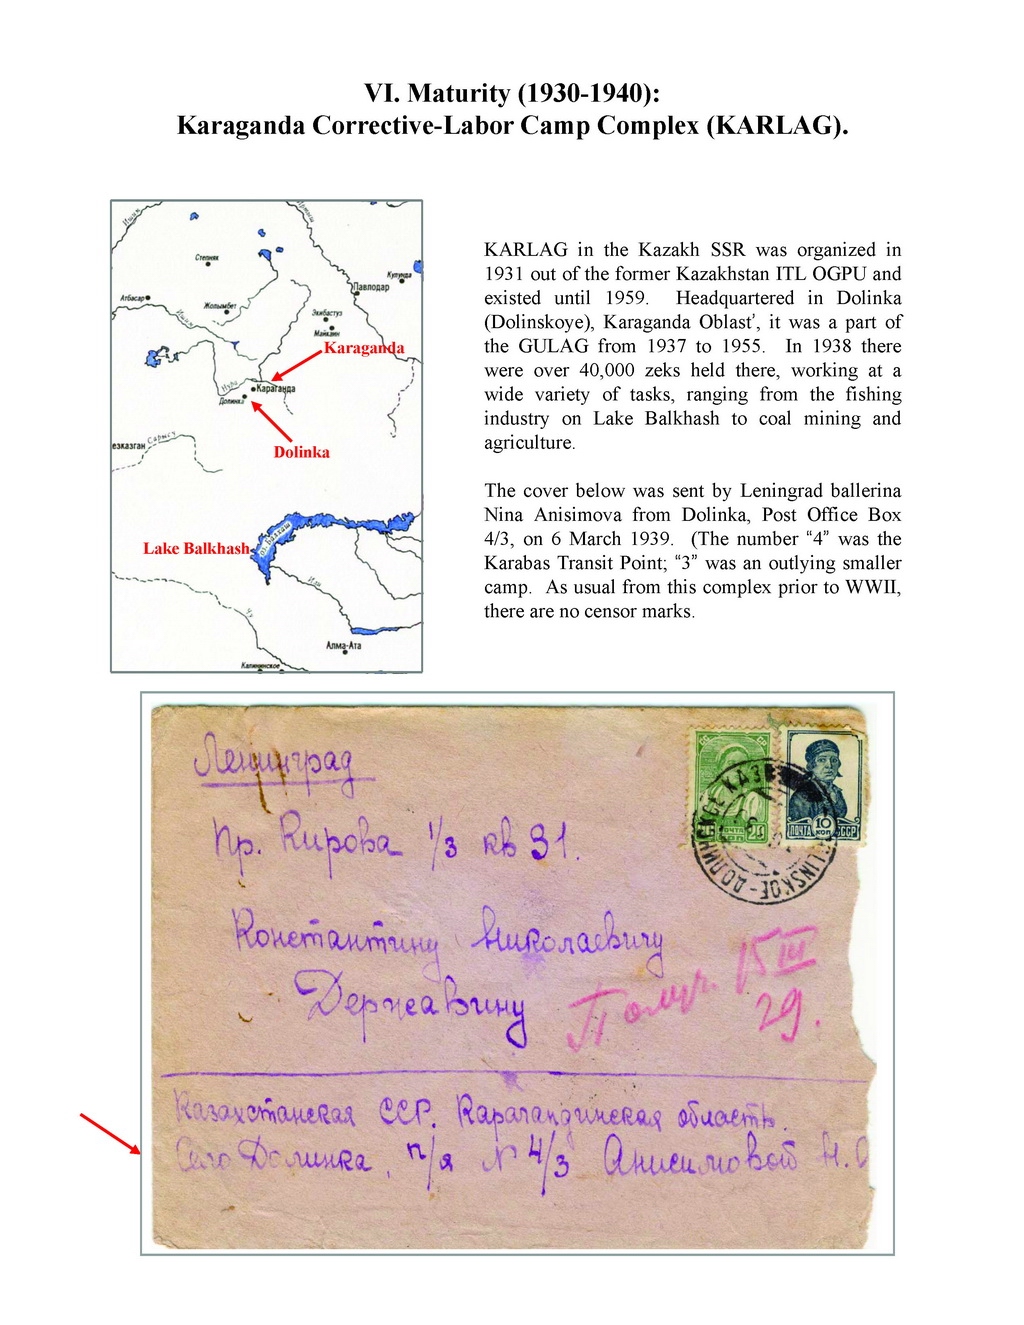 VI. Maturity (1930-1940):
Karaganda Corrective-Labor Camp Complex (KARLAG).
Ишим
Иртыш
Степняк
Кулунда
Павлодар
Атбасар
Жолымбет
Экибастуз
Ишим
Майкаин
Karaganda
Нура
Караганда
Долинка
Сарысу
езказган
Dolinka
оз.Балхаш
Lake Balkhash
Или
Чу
Алма-Ата
Калининское
KARLAG in the Kazakh SSR was organized in
1931 out of the former Kazakhstan ITL OGPU and
existed until 1959. Headquartered in Dolinka
(Dolinskoye), Karaganda Oblast’, it was a part of
the GULAG from 1937 to 1955. In 1938 there
were over 40,000 zeks held there, working at a
wide variety of tasks, ranging from the fishing
industry on Lake Balkhash to coal mining and
agriculture.
The cover below was sent by Leningrad ballerina
Nina Anisimova from Dolinka, Post Office Box
4/3, on 6 March 1939. (The number “4” was the
Karabas Transit Point; “3” was an outlying smaller
camp. As usual from this complex prior to WWII,
there are no censor marks.
Ленинград
Пр. Кирова 1/3 кв 31.
Константину Николаевичу
Державину
Получ. 15 III
29.
ПОЧТА
ПОЧТА 10 КОП СССР
ДОЛИНСКОЕ КАЗ
LINSKOE
Казахстанская ССР. Карагандинская область.
Село Долинка, п/я N 4/3 Анисимовой Н.